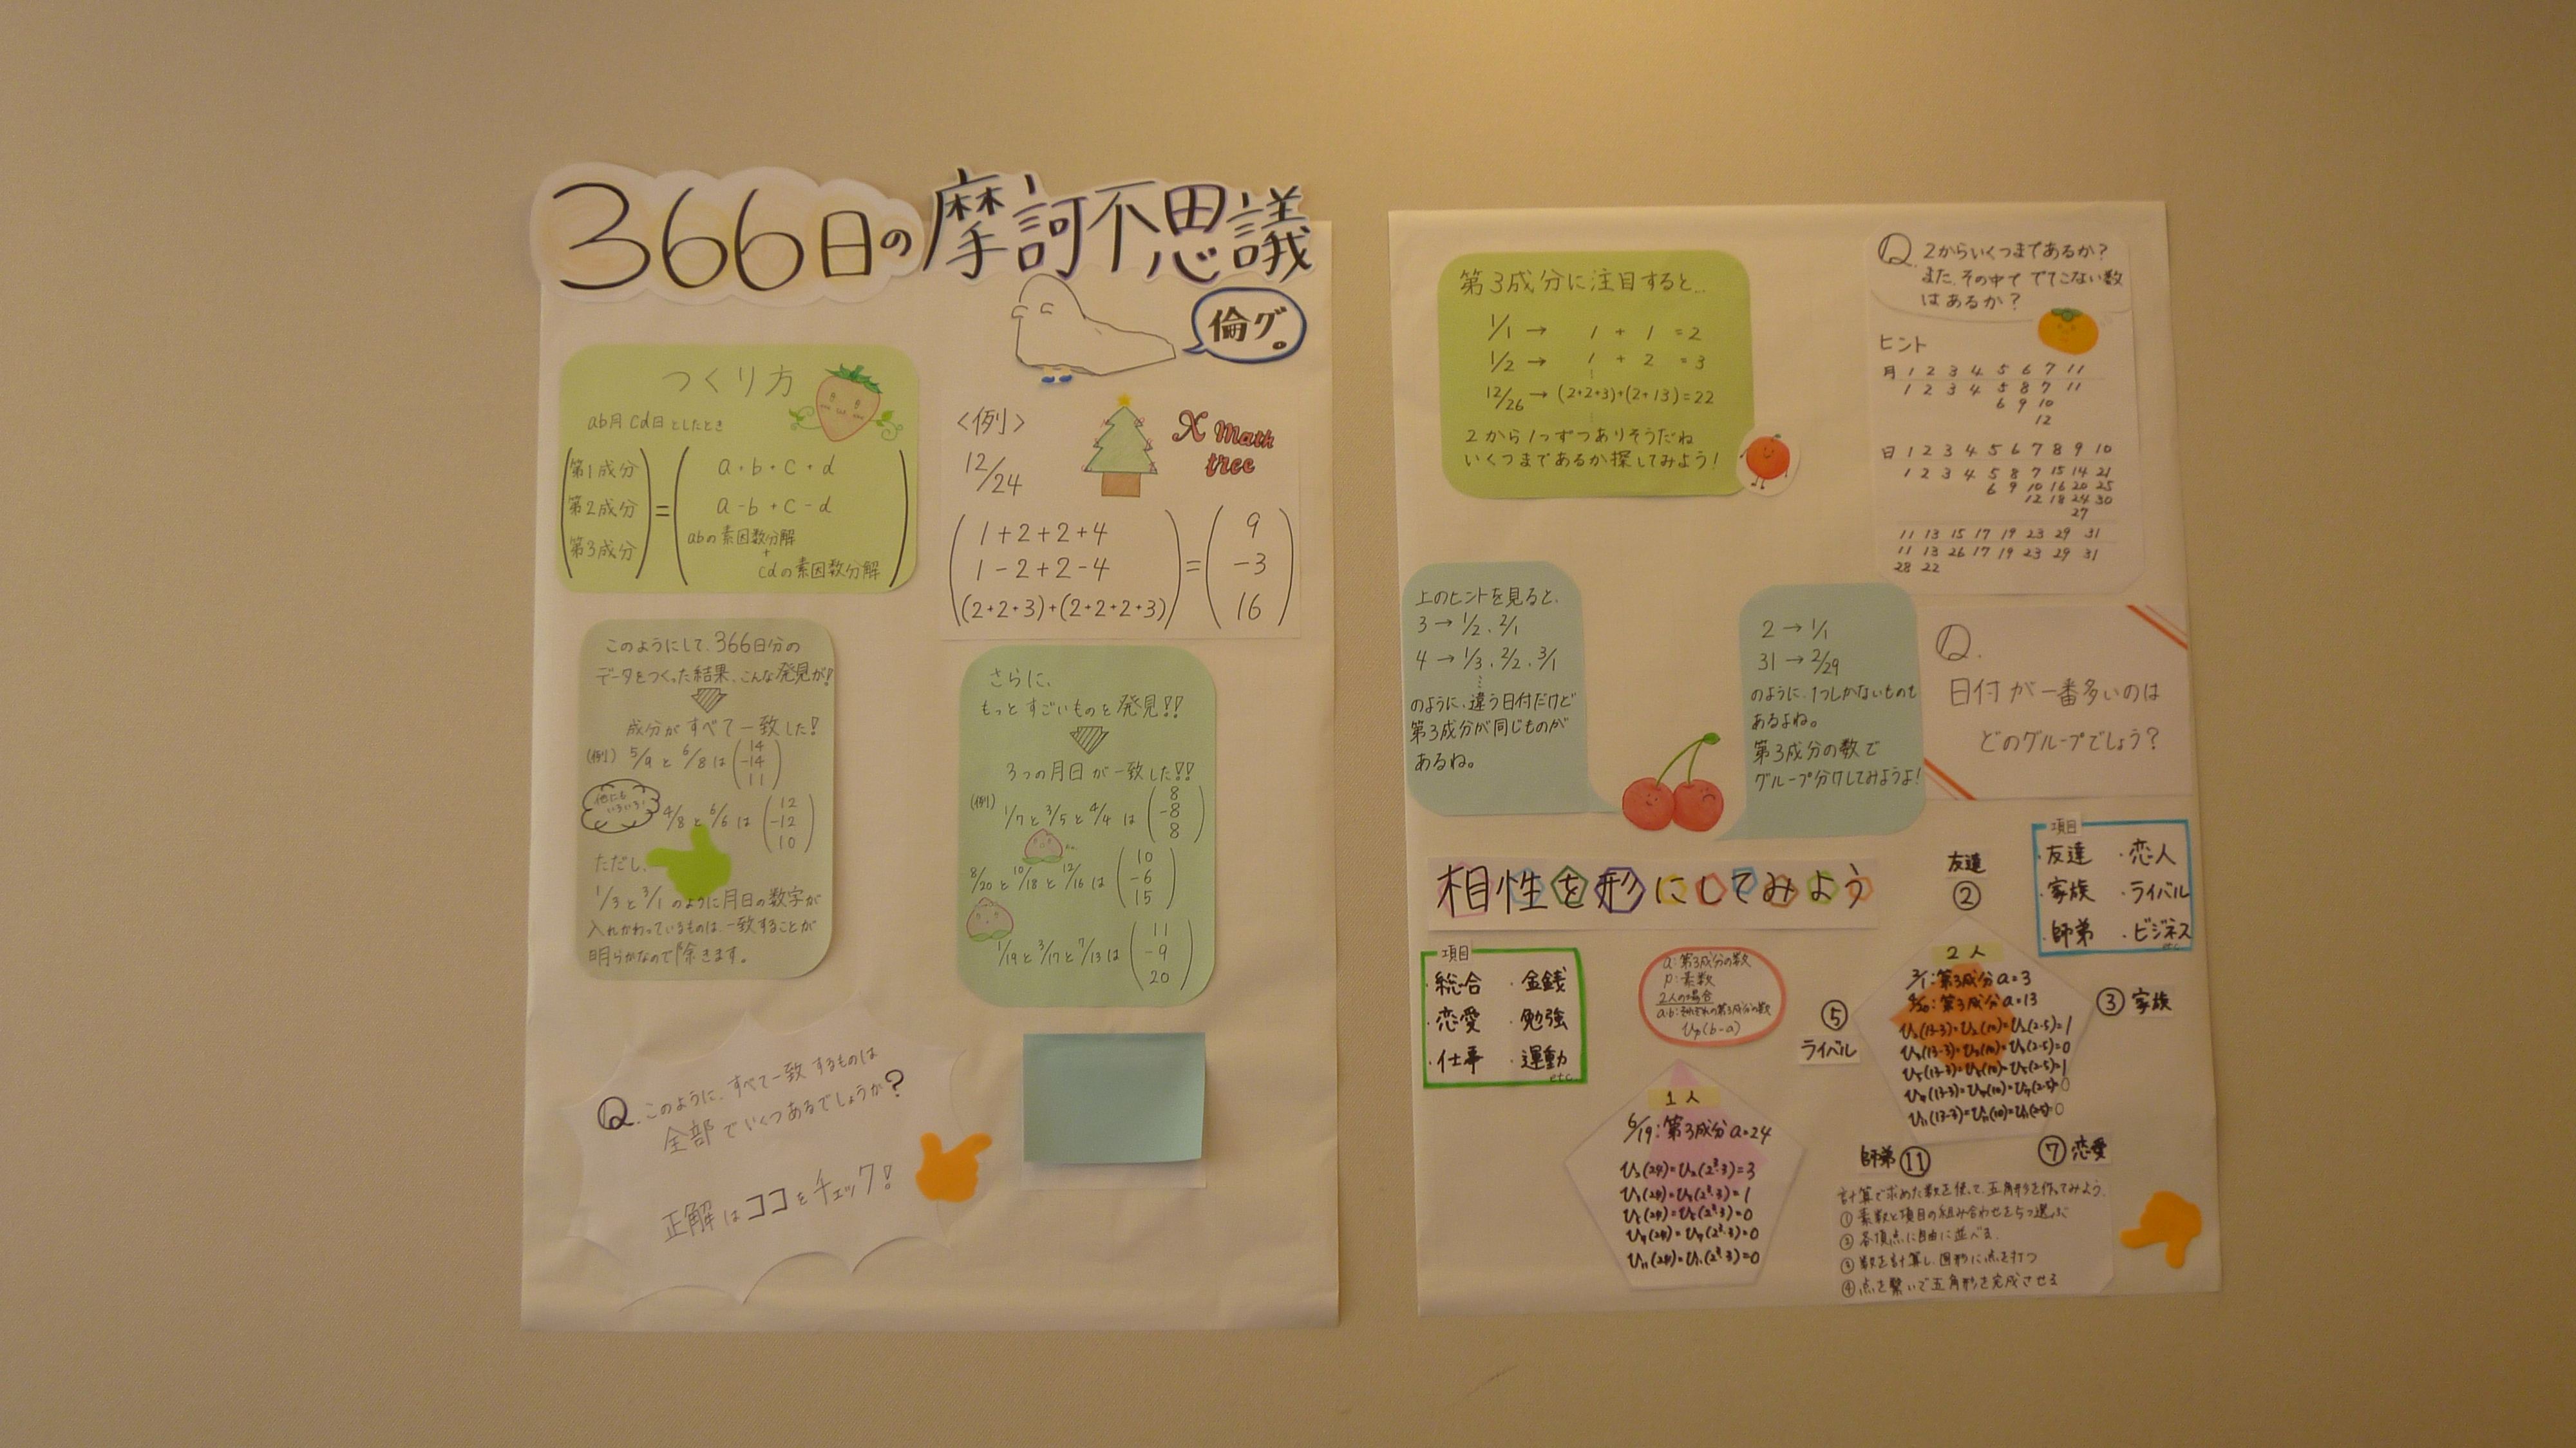 366日の摩訶不思議
倫グ。
つくり方
ab月cd日としたとき
第1成分
第2成分
第3成分
=
a+b+c+d
a-b+c-d
abの素因数分解
+
cdの素因数分解
<例>
12/24
X Math
tree
1+2+2+4
1-2+2-4
(2+2+3)+(2+2+2+3)
=
9
-3
16
このようにして、366日分の
データをつくった結果、こんな発見が!
成分がすべて一致した!
(例) 5/9と6/8は
14
-14
11
他にも
いろいろ!
4/8と6/6は
12
-12
10
ただし、
1/3と3/1のように月日の数字が
入れかわっているものは、一致することが
明らかなので除きます。
さらに、
もっとすごいものを発見!!
3つの月日が一致した!!
(例)
1/7と3/5と4/4は
8
-8
8
8/20と10/18と12/16は
10
-6
15
1/19と3/17と7/13は
11
-9
20
Q.このように、すべて一致するものは
全部でいくつあるでしょうか?
正解はココをチェック!
第3成分に注目すると…
1/1→ 1+1=2
1/2→ 1+2=3
12/26→(2+2+3)+(2+13)=22
2から1つずつありそうだね
いくつまであるか探してみよう!
Q.2からいくつまであるか?
また、その中ででてこない数
はあるか?
ヒント
月 1 2 3 4 5 6 7 11
1 2 3 4 5 8 7 11
6 9 10
12
日 1 2 3 4 5 6 7 8 9 10
1 2 3 4 5 8 7 15 14 21
6 9 10 16 20 25
12 18 24 30
27
11 13 15 17 19 23 29 31
11 13 26 17 19 23 29 31
28 22
上のヒントを見ると、
3→1/2、2/1
4→1/3、2/2、3/1
のように、違う日付だけど
第3成分が同じものが
あるね。
2→1/1
31→2/29
のように、1つしかないものも
あるよね。
第3成分の数で
グループ分けしてみようよ!
Q.
日付が一番多いのは
どのグループでしょう?
相性を形にしてみよう
項目
・総合 ・金銭
・恋愛 ・勉強
・仕事 ・運動
etc
a:第3成分の数
p:素数
2人の場合
a・b:それぞれの第3成分の数
Up(b-a)
1人
6/19:第3成分a=24
U₂(24)=U₂(2³・3)=3
U₃(24)=U₃(2³・3)=1
U₅(24)=U₅(2³・3)=0
U₇(24)=U₇(2³・3)=0
U₁₁(24)=U₁₁(2³・3)=0
項目
・友達 ・恋人
・家族 ・ライバル
・師弟 ・ビジネス
etc
友達
②
③家族
⑤
ライバル
師弟⑪
⑦恋愛
2人
第3成分a=3
第3成分a=13
U₂(13-3)=U₂(10)=U₂(2・5)=1
U₃(13-3)=U₃(10)=U₃(2・5)=0
U₅(13-3)=U₅(10)=U₅(2・5)=1
U₇(13-3)=U₇(10)=U₇(2・5)=0
U₁₁(13-3)=U₁₁(10)=U₁₁(2・5)=0
計算で求めた数を使って、五角形を作ってみよう。
①素数と項目の組み合わせを5つ選ぶ
②各頂点に自由に並べる。
③数を計算し、図形に点を打つ
④点を繋いで五角形を完成させる